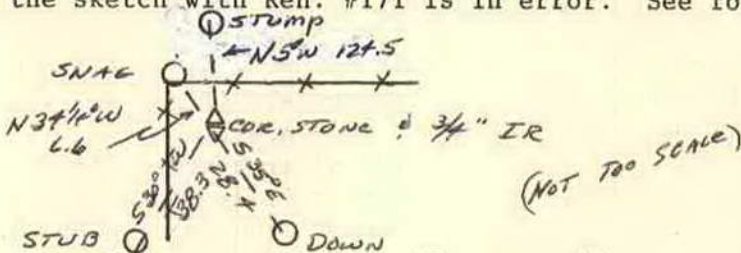 the sketch with Ren. #171 is in error. See
STUMP
N5°W 124.5
SNAG
N34½°W
6.6
COR. STONE & 3/4" IR
(NOT TOO SCALE)
S30°W
38.3
S35°E
28.
STUB
DOWN